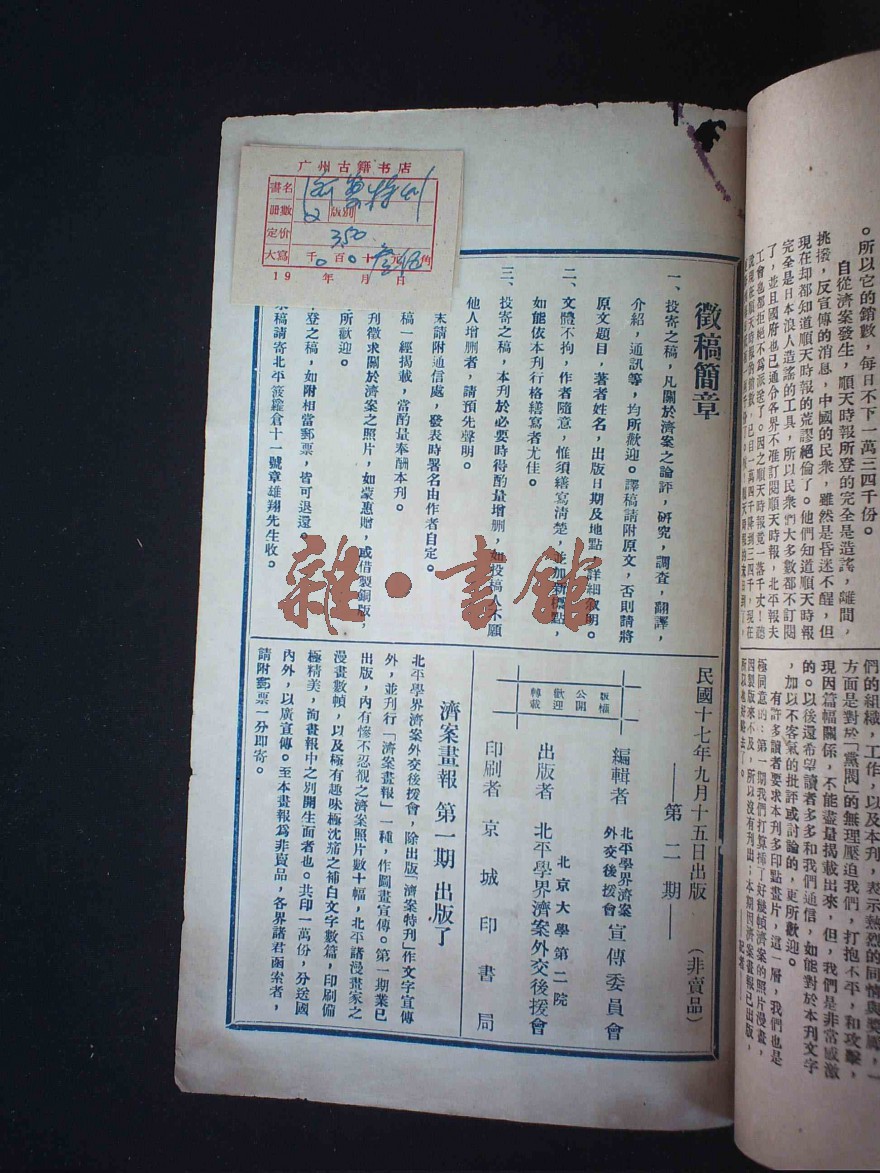 。所以它的銷數，每日不下一萬三四千份。
自從濟案發生，順天時報所登的完全是造謠，離間，
挑撥，反宣傳的消息，中國的民衆，雖然是昏迷不醒，但
現在却都知道順天時報的荒謬絕倫了。他們知道順天時報
完全是日本浪人造謠的工具，所以民衆們大多數都不訂閱
了，並且國府也已通令各界不准訂閱順天時報，北平報夫
工會也都拒絕不爲派送了。因之順天時報竟一落千丈！聽
們的組織，工作，以及本刊，表示熱烈的同情與獎勵，一
方面是對於「黨閥」的無理壓迫我們，打抱不平，和攻擊，
現因篇幅關係，不能盡量揭載出來，但，我們是非常感激
的。以後還希望讀者多多和我們通信，如能對於本刊文字
，加以不客氣的批評或討論的，更所歡迎。
有許多讀者要求本刊多印點畫片，這一層，我們也是
極同意的：第一期我們打算揷了好幾幀濟案的照片漫畫，
因製版來不及，所以沒有刊出；本期因濟案畫報已出版，
广州古籍书店
書名 濟案特刊
冊數 2 版别
定价 350
大寫 千 百 十 元 角
19 年 月 日
徵稿簡章
一、投寄之稿，凡關於濟案之論評，研究，調查，翻譯，
介紹，通訊等，均所歡迎。譯稿請附原文，否則請將
原文題目，著者姓名，出版日期及地點，詳細叙明。
二、文體不拘，作者隨意，惟須繕寫清楚，並加新標點，
如能依本刊行格繕寫者尤佳。
三、投寄之稿，本刊於必要時得酌量增删，如投稿人不願
他人增删者，請預先聲明。
末請附通信處，發表時署名由作者自定。
稿一經揭載，當酌量奉酬本刊。
刊徵求關於濟案之照片，如蒙惠贈，或借製銅版，
所歡迎。
登之稿，如附相當郵票，皆可退還。
稿請寄北平簑籮倉十一號章雄翔先生收。
雜·書館
民國十七年九月十五日出版 （非賣品）
——第二期——
版權
公開
歡迎
轉載
編輯者 北平學界濟案外交後援會 宣傳委員會
北京大學第二院
出版者 北平學界濟案外交後援會
印刷者 京城印書局
濟案畫報 第一期 出版了
北平學界濟案外交後援會，除出版「濟案特刊」作文字宣傳
外，並刊行「濟案畫報」一種，作圖畫宣傳。第一期業已
出版，內有慘不忍視之濟案照片數十幅，北平諸漫畫家之
漫畫數幀，以及極有趣味極沈痛之補白文字數篇，印刷備
極精美，洵畫報中之别開生面者也。共印一萬份，分送國
內外，以廣宣傳。至本畫報爲非賣品，各界諸君函索者，
請附郵票一分卽寄。